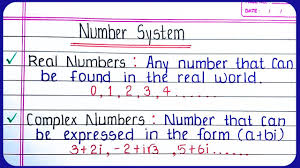 DATE / /
Number System
✓ Real Numbers : Any number that can
be found in the real world.
0, 1, 2, 3, 4 ......
✓ Complex Numbers : Number that can
be expressed in the form (a+bi)
3+2i, -2+i√3 , 5+6i ......